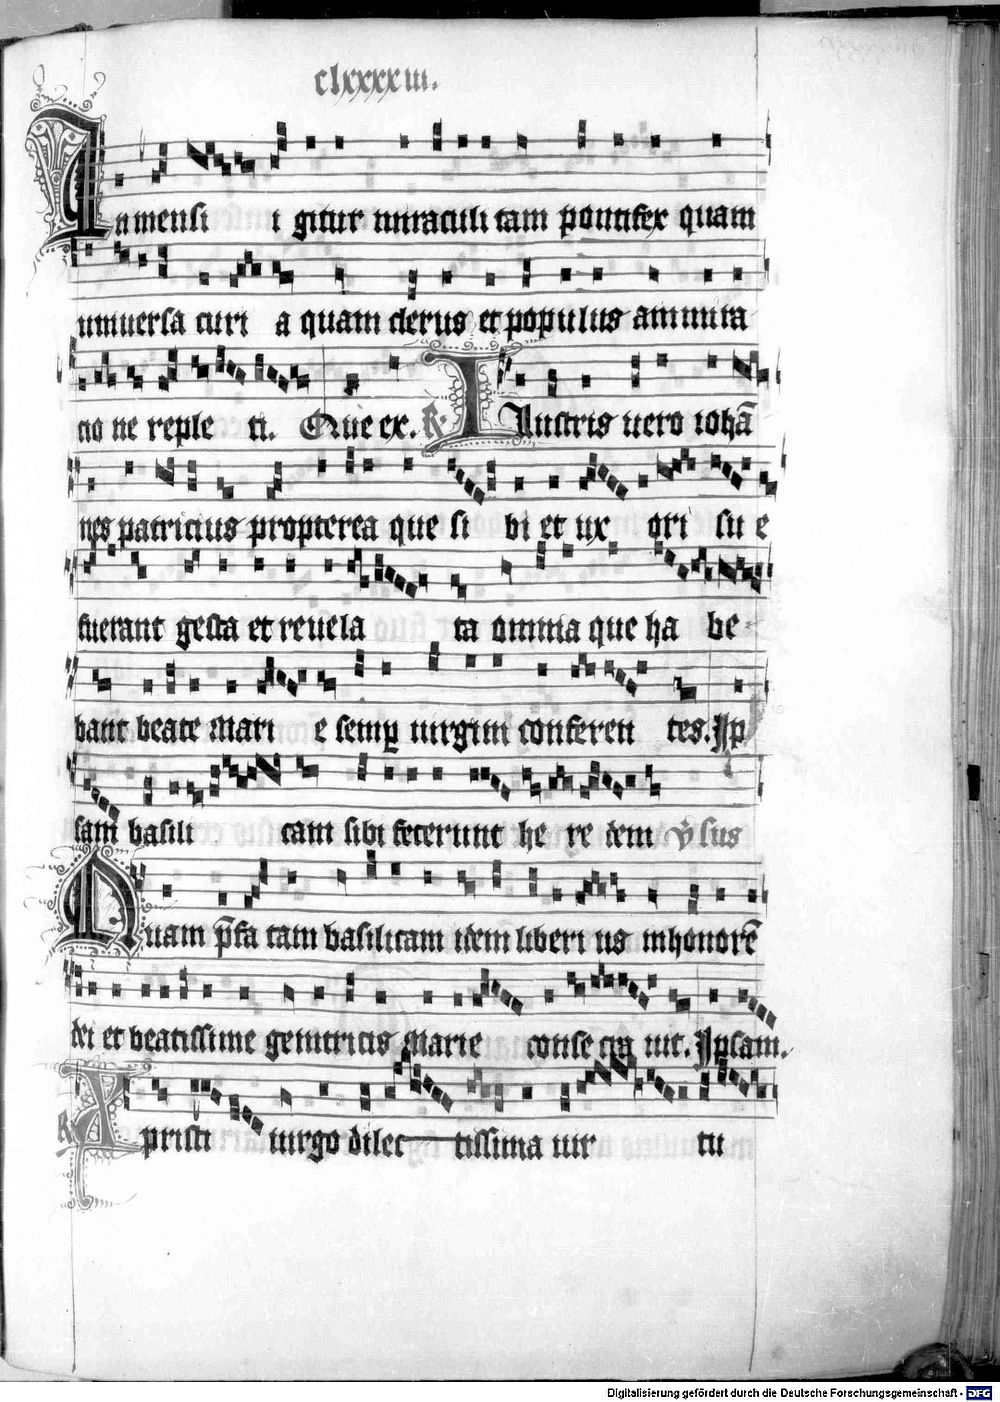 clxxxxiii.
Inmensi i gitur miraculi tam pontifex quam
universa curi a quam clerus et populus ammira
cio ne reple ti. Que ex. R Illustris vero iohā
nes patricius propterea que si bi et ux ori su e
fuerant gesta et revela ta omnia que ha be
bant beate Mari e semꝑ virgini conferen tes. Ip
sam basili cam sibi fecerunt he re dem v̄sus
Quam p̄fa tam basilicam idem liberi us inhonorē
dei et beatissime genitricis Marie conse cra vit. Ipsam.
R Xpristi virgo dilec tissima vir tu
Digitalisierung gefördert durch die Deutsche Forschungsgemeinschaft - DFG